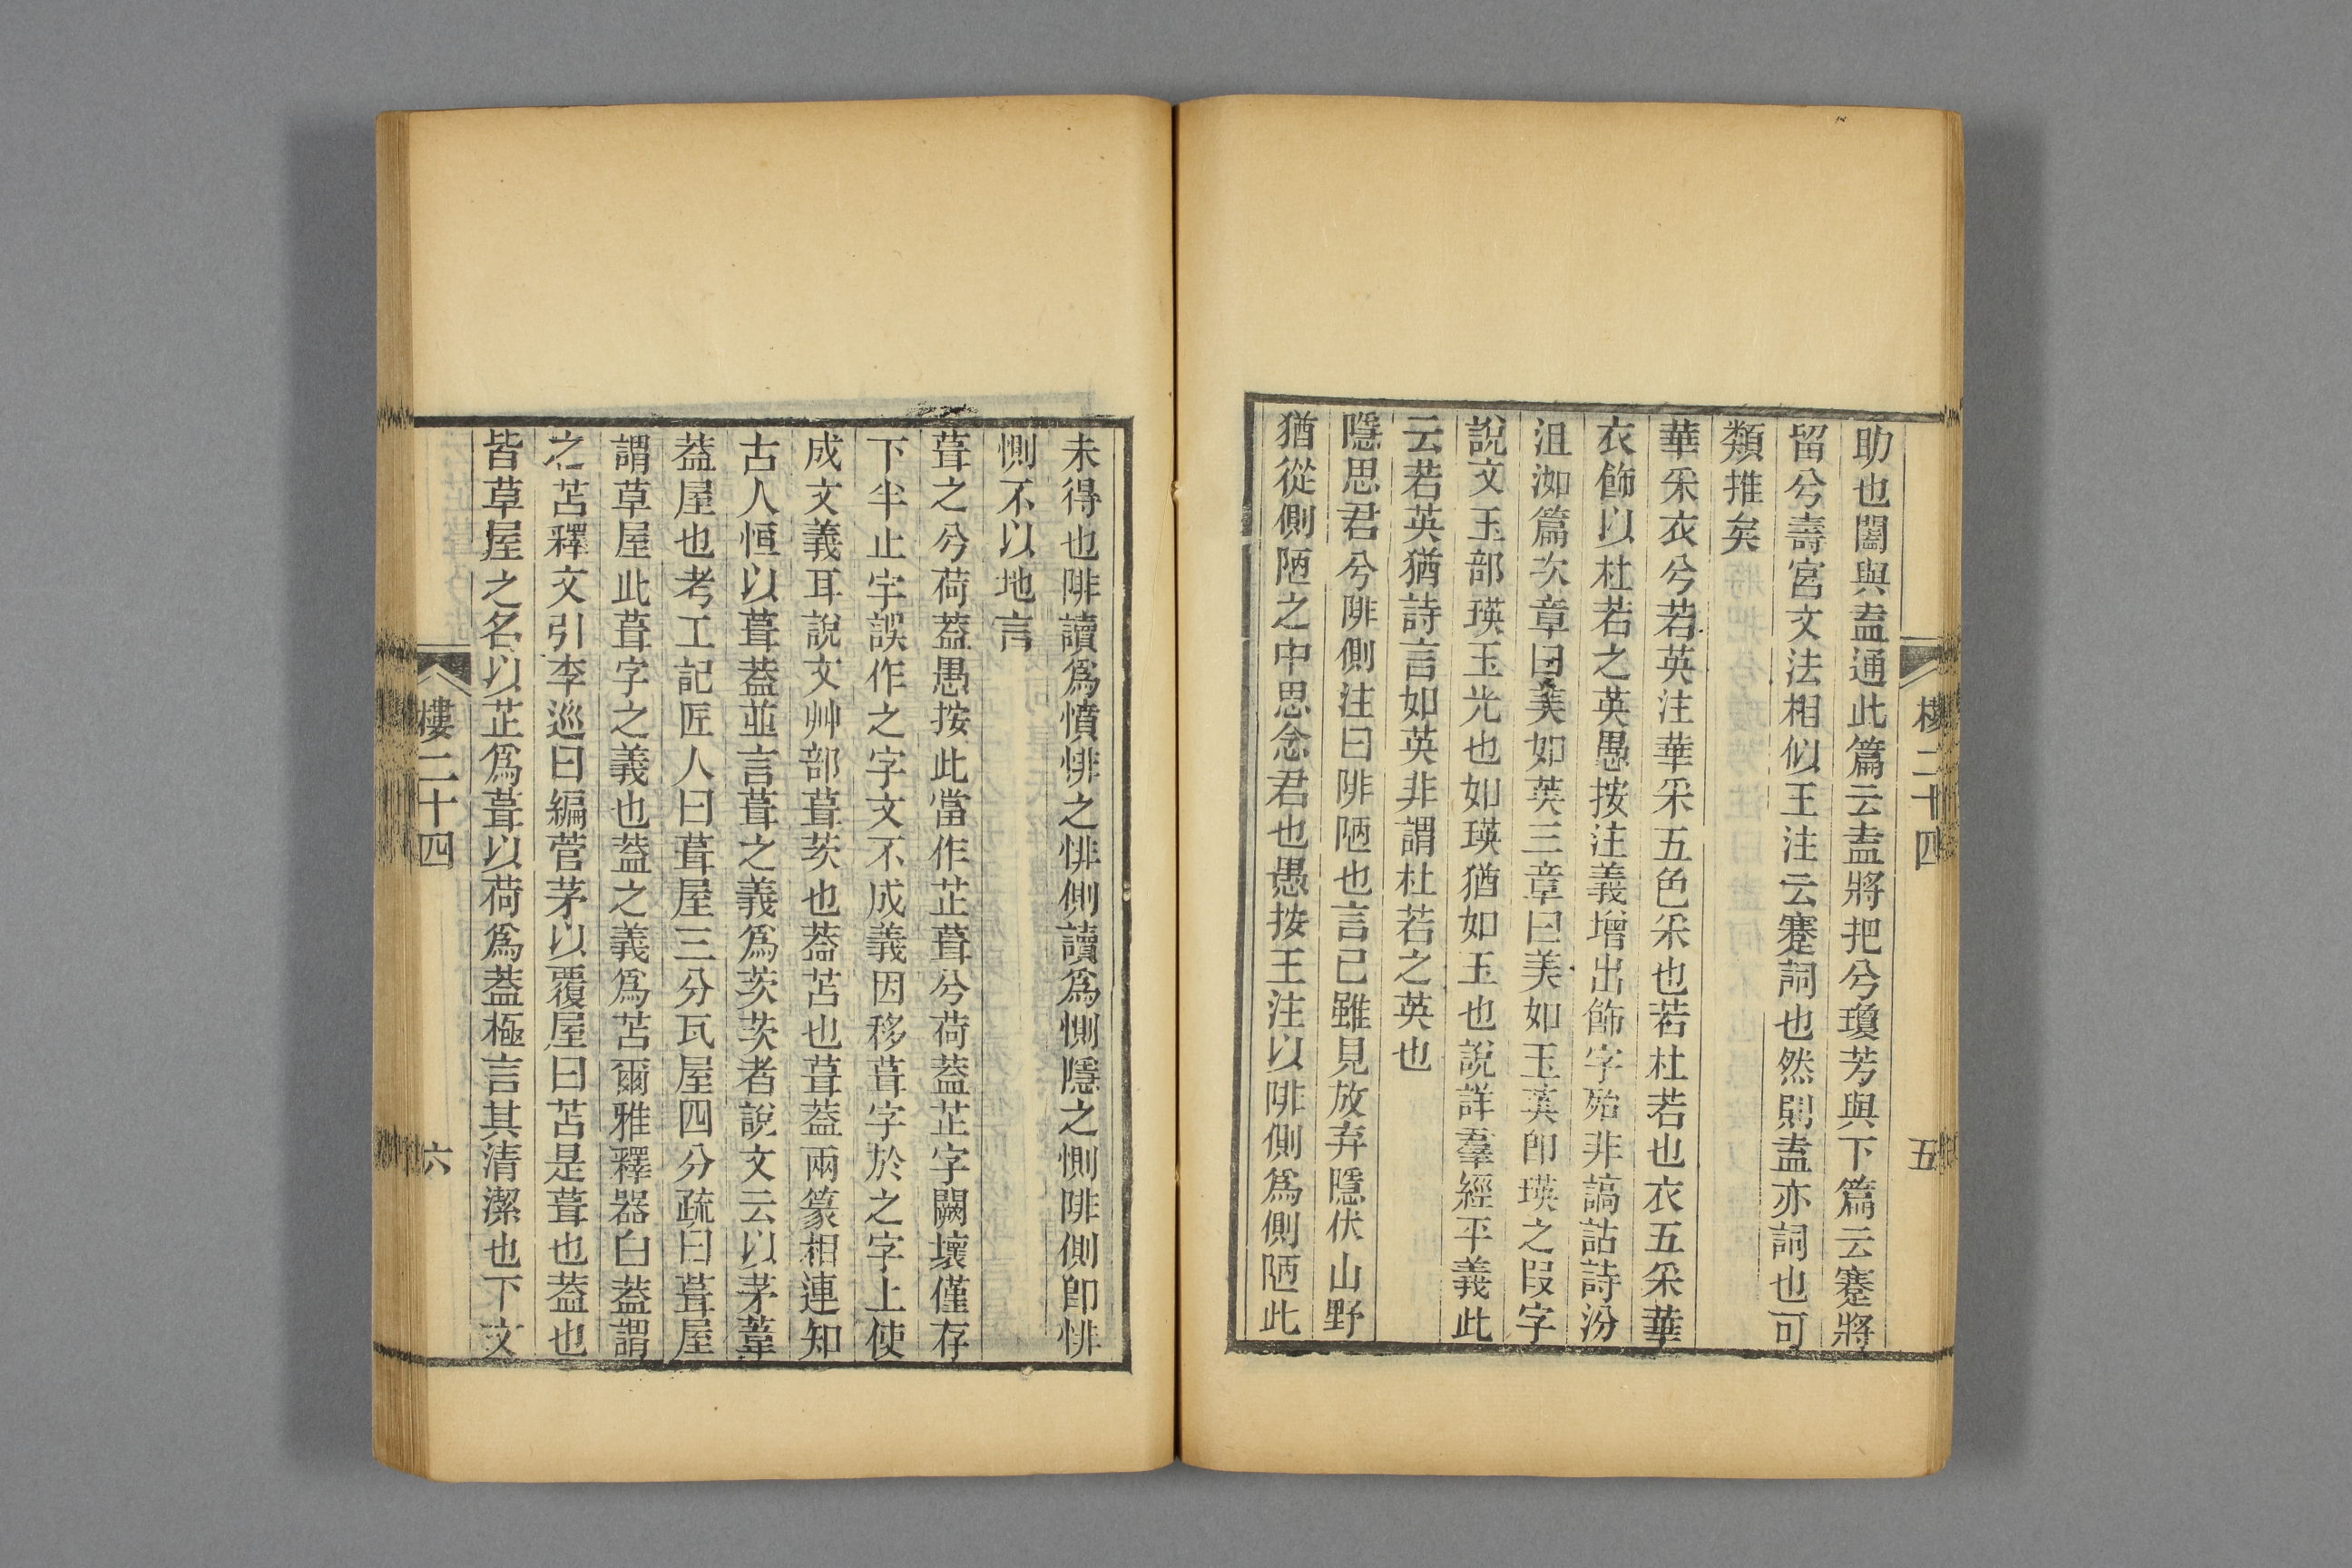 助也闔與盍通此篇云盍將把兮瓊芳與下篇云蹇將
留兮壽宮文法相似王注云蹇詞也然則盍亦詞也可
類推矣
華采衣兮若英注華采五色采也若杜若也衣五采華
衣飾以杜若之英愚按注義增出飾字殆非詁詩汾
沮洳篇次章曰美如英三章曰美如玉英卽瑛之叚字
說文玉部瑛玉光也如瑛猶如玉也說詳羣經平義此
云若英猶詩言如英非謂杜若之英也
隱思君兮陫側注曰陫陋也言己雖見放弃隱伏山野
猶從側陋之中思念君也愚按王注以陫側爲側陋此
樓二十四
五
未得也陫讀爲憤悱之悱側讀爲惻隱之惻陫側卽悱
惻不以地言
葺之兮荷蓋愚按此當作芷葺兮荷蓋芷字闕壞僅存
下半止字誤作之字文不成義因移葺字於之字上使
成文義耳說文艸部葺茨也葢苫也葺蓋兩篆相連知
古人恒以葺蓋並言葺之義爲茨茨者說文云以茅葦
蓋屋也考工記匠人曰葺屋三分瓦屋四分疏曰葺屋
謂草屋此葺字之義也蓋之義爲苫爾雅釋器白蓋謂
之苫釋文引李巡曰編菅茅以覆屋曰苫是葺也蓋也
皆草屋之名以芷爲葺以荷爲蓋極言其清潔也下文
樓二十四
六